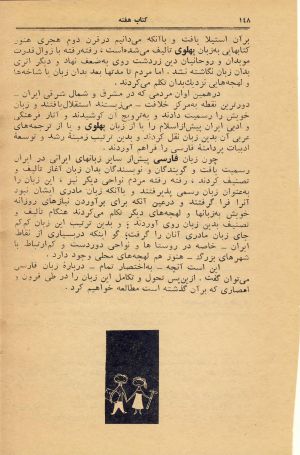 ۱۴۸
کتاب هفته
برآن استیلا یافت و باآنکه می‌دانیم درقرن دوم هجری هنوز
کتابهایی به‌زبان پهلوی تألیف می‌شده‌است، رفته‌رفته با زوال قدرت
موبدان و روحانیان دین زردشت روی به‌ضعف نهاد و دیگر اثری
بدان زبان نگاشته نشد، اما مردم تا مدتها بعد بدان زبان یا شاخه‌ها
و لهجه‌هایی نزدیک‌بدان تکلم می‌کردند.
درهمین اوان مردمی که در مشرق و شمال شرقی ایران –
دورترین نقطه به‌مرکز خلافت – می‌زیستند استقلال‌یافتند و زبان
خویش را رسمیت دادند و به‌ترویج آن کوشیدند و آثار فرهنگی
و ادبی ایران پیش‌ازاسلام را یا از زبان پهلوی و یا از ترجمه‌های
عربی آن بدین زبان نقل کردند و بدین ترتیب زمینهٔ رشد و توسعهٔ
ادبیات پردامنهٔ فارسی را فراهم آوردند.
چون زبان فارسی پیش‌از سایر زبانهای ایرانی در ایران
رسمیت یافت و گویندگان و نویسندگان بدان زبان آغاز تألیف و
تصنیف کردند، رفته رفته مردم نواحی دیگر نیز، این زبان را
به‌عنوان زبان رسمی پذیرفتند و باآنکه زبان مادری ایشان نبود
آنرا فرا گرفتند و درعین آنکه برای برآوردن نیازهای روزانه
خویش به‌زبانها و لهجه‌های دیگر تکلم می‌کردند هنگام تألیف و
تصنیف بدین زبان روی آوردند، و بدین ترتیب این زبان کم‌کم
جای زبان مادری آنان را گرفت؛ گو اینکه دربسیاری از نقاط
ایران – خاصه در روستا ها و نواحی دوردست و کم‌ارتباط با
شهرهای بزرگ – هنوز هم لهجه‌های محلی وجود دارد.
این است آنچه – به‌اختصار تمام – دربارهٔ زبان فارسی
می‌توان گفت. ازین‌پس تحول و تکامل این زبان را در طی قرون و
اعصاری که برآن گذشته است مطالعه خواهیم کرد.